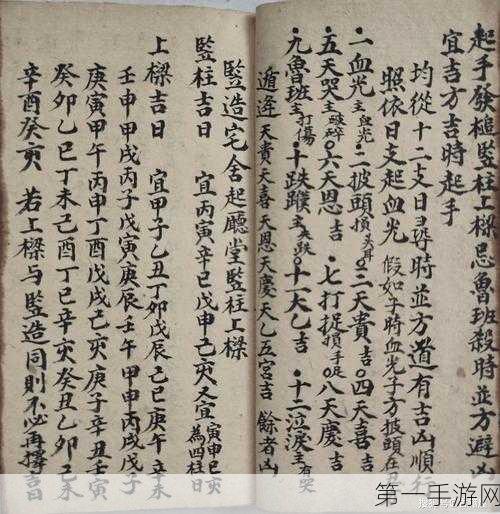 起手發槌竪柱上樑忌魯班殺時並方避凶
宜吉方吉時起手
均從十二支日尋時並方道有吉凶順行
照依日支起血光 假如子時血光子方披頭在丑
一血光主血光·二披頭損頭耳·三天貴吉·四天喜吉
·五天哭主破碎·六天恩吉·七打捉損手足·八天慶吉
·九魯班主打傷·十跌蹼主失跌·十一天乙吉·十二泣淚主有哭
遁逢天貴天喜天恩天慶天乙五宮吉 餘者凶
竪造宅舍起廳堂竪柱上樑
竪柱吉日 宜丙寅辛巳戊申己亥又宜寅申巳亥為四柱日
上樑吉日 宜甲子乙丑丁卯戊辰己巳庚午辛未
壬申甲戌丙子戊寅庚辰壬午甲申丙戌戊子
庚寅甲午丙申丁酉戊戌己亥庚子辛丑壬寅
癸卯乙巳丁未己酉丁巳辛亥癸丑乙卯己未
辛酉癸亥 若上樑与竪造同則不必再擇吉
第一手游网